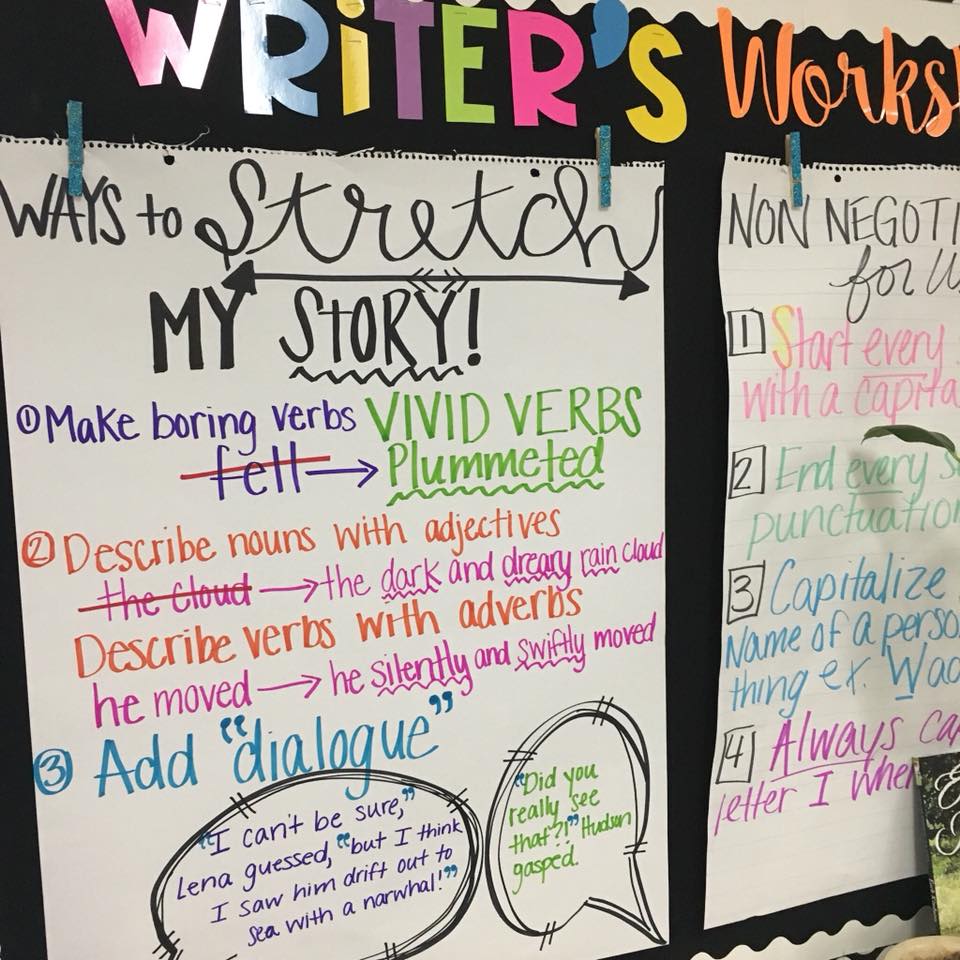 WRITER'S Works
WAYS to Stretch
MY STORY!
① Make boring verbs VIVID VERBS
fell → Plummeted
② Describe nouns with adjectives
the cloud → the dark and dreary rain cloud
Describe verbs with adverbs
he moved → he silently and swiftly moved
③ Add "dialogue"
"I can't be sure,"
Lena guessed, "but I think
I saw him drift out to
sea with a narwhal!"
"Did you
really see
that?!" Hudson
gasped.
NON NEGOTI
for
1 Start every
with a capita
2 End every s
punctuation
3 Capitalize
Name of a perso
thing ex. Wac
4 Always cap
letter I when